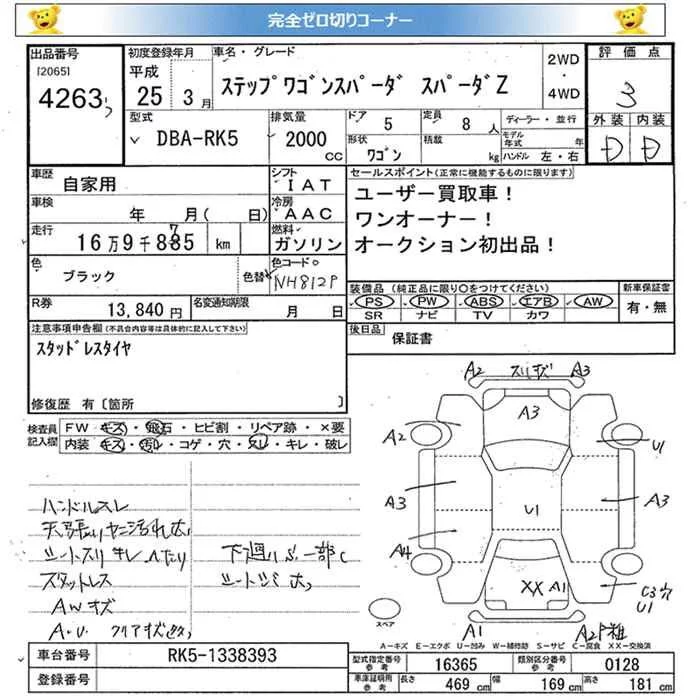 完全ゼロ切りコーナー
出品番号 初度登録年月 車名・グレード 2WD 評価点
[2065] 平成 ステップワゴンスパーダ スパーダZ ・ 3
4263 25年 3月 4WD 外装 内装
型式 排気量 ドア 5 定員 8人 ディーラー・並行 D D
DBA-RK5 2000cc 形状 ワゴン 積載 kg モデル年式 年 ハンドル 左・右
車歴 自家用 シフト IAT セールスポイント(正常に機能するものに限ります)
車検 年 月( 日) 冷房 AAC ユーザー買取車!
走行 16万9千835km 燃料 ガソリン ワンオーナー!
色 ブラック 色替 色コード NH812P オークション初出品!
R券 13,840円 名変通知期限 月 日 装備品(純正品に限り○をつけてください) 新車保証書
PS・PW・ABS・エアB・AW 有・無
SR ナビ TV カワ
注意事項申告欄(不具合内容等は具体的に記入して下さい) 後日品 保証書
スタッドレスタイヤ
修復歴 有〔箇所 〕
検査員記入欄 FW キズ・飛石・ヒビ割・リペア跡・×要
内装 キズ・汚れ・コゲ・穴・スレ・キレ・破レ
A2 スリキズ A3
A3
A2 U1
A3 U1 A3
A4
XX A1 C3穴
U1
A1 A2
スペア
ハンドルスレ
シートスリキレ
スタットレス
AWキズ
A-キズ E-エクボ U-凹み W-補修跡 S-サビ C-腐食 XX-交換済
車台番号 RK5-1338393 型式指定番号 参考 16365 類別区分番号 参考 0128
登録番号 車庫証明用 参考 長さ 469cm 幅 169cm 高さ 181cm